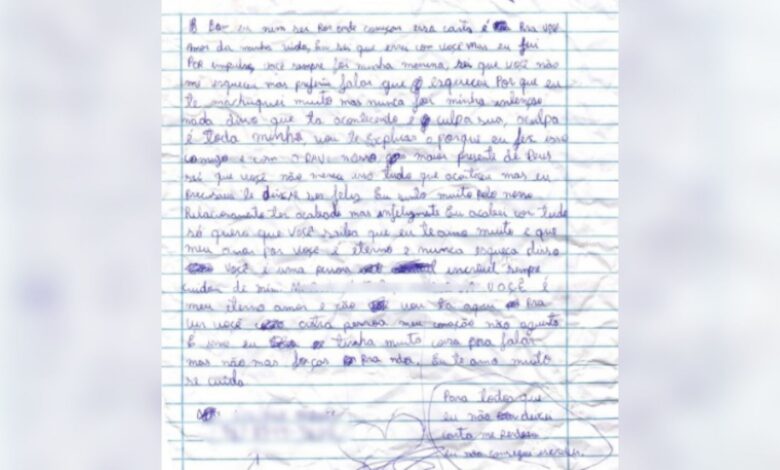 Bom eu nem sei por onde começar essa carta é pra você
mor da minha vida, Eu sei que errei com você mas eu fui
Por impulso, você sempre foi minha menina, sei que você não
me esqueceu mas preferia falar que esqueceu Por que eu
te machuquei muito mas nunca foi minha
nada disso que ta acontecendo é culpa sua, a culpa
é toda minha, vou te explicar o porque eu fiz isso
comigo e com o RAVI nosso maior presente de Deus
sei que você não merecia isso tudo que aconteceu mas eu
precisava te deixar ser feliz Eu sinto muito pelo nosso
Relacionamento ter acabado mas Eu acabei com tudo
só quero que você saiba que eu te amo muito e que
meu amor por você é eterno e nunca esqueça disso
você é uma pessoa incrível sempre
cuidou de mim. VOCÊ É
meu eterno amor e não vou ta aqui pra
ver você outra pessoa meu coração não aguenta
eu tinha muita coisa pra falar
mas não mas forças pra nada, Eu te amo muito
se cuida
Para todos que
eu não deixei
carta me perdoem
eu não consegui escrever.